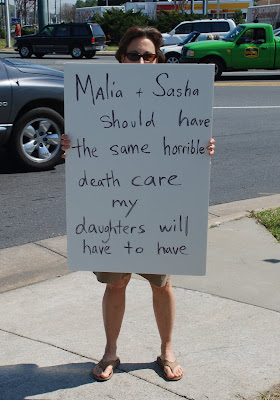 Malia + Sasha
should have
the same horrible
death care
my
daughters will
have to have